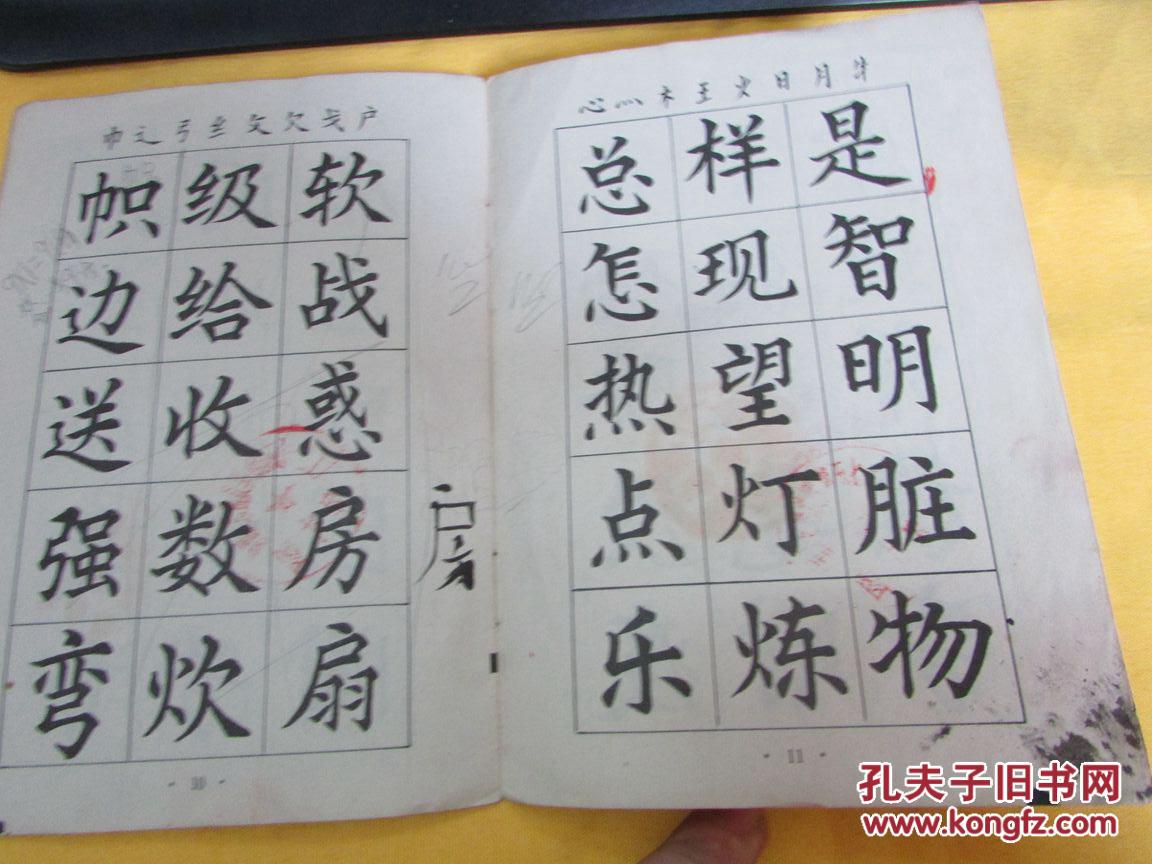 巾辶弓纟攵欠戈户
帜级软
边给战
送收惑
强数房
弯炊扇
房
- 10 -
心灬木王火日月牜
总样是
怎现智
热望明
点灯脏
乐炼物
- 11 -
孔夫子旧书网
www.kongfz.com